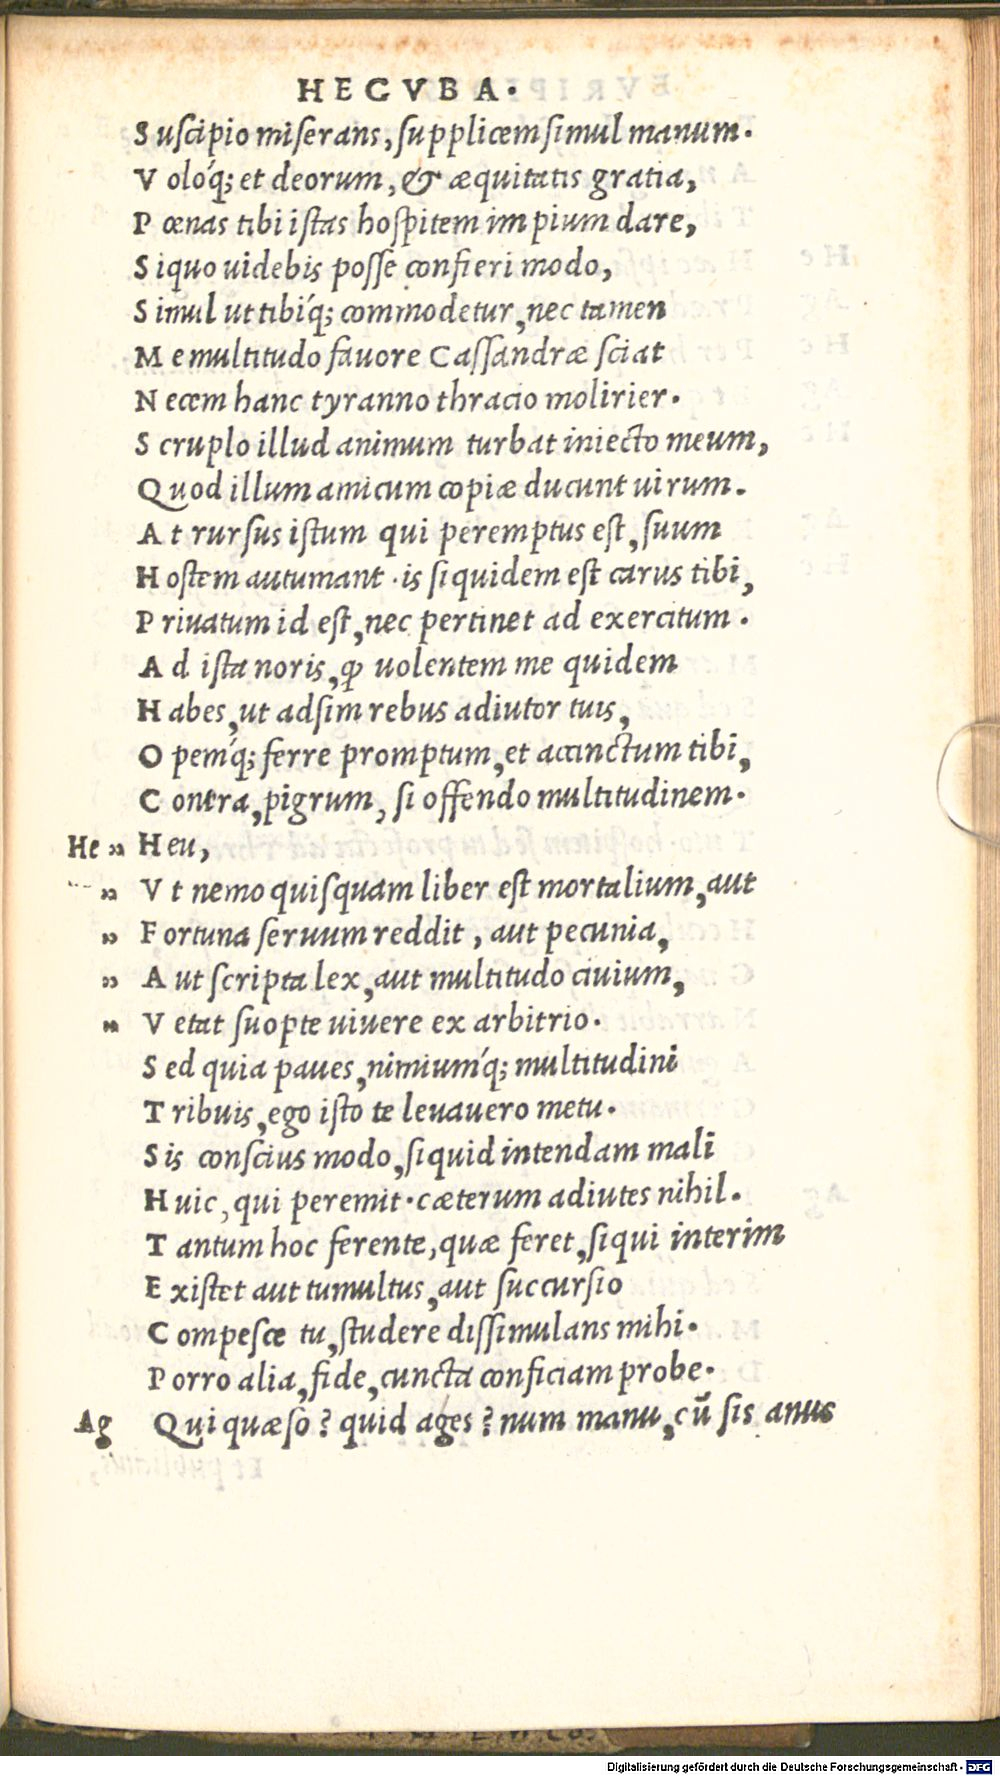 HECVBA.
Suscipio miserans, supplicem simul manum.
Voloq́; et deorum, & æquitatis gratia,
Pœnas tibi istas hospitem impium dare,
Siquo uidebis posse confieri modo,
Simul ut tibiq́; commodetur, nec tamen
Me multitudo fauore Cassandræ sciat
Necem hanc tyranno thracio molirier.
Scruplo illud animum turbat iniecto meum,
Quod illum amicum copiæ ducunt uirum.
At rursus istum qui peremptus est, suum
Hostem autumant. is siquidem est carus tibi,
Priuatum id est, nec pertinet ad exercitum.
Ad ista noris, ꝙ uolentem me quidem
Habes, ut adsim rebus adiutor tuis,
Opemq́; ferre promptum, et accinctum tibi,
Contra, pigrum, si offendo multitudinem.
He » Heu,
» Vt nemo quisquam liber est mortalium, aut
» Fortuna seruum reddit, aut pecunia,
» Aut scripta lex, aut multitudo ciuium,
» Vetat suopte uiuere ex arbitrio.
Sed quia paues, nimiumq́; multitudini
Tribuis, ego isto te leuauero metu.
Sis conscius modo, siquid intendam mali
Huic, qui peremit. cæterum adiutes nihil.
Tantum hoc ferente, quæ feret, siqui interim
Existet aut tumultus, aut succursio
Compesce tu, studere dissimulans mihi.
Porro alia, fide, cuncta conficiam probe.
Ag Qui quæso? quid ages? num manu, cū sis anus
Digitalisierung gefördert durch die Deutsche Forschungsgemeinschaft - DFG